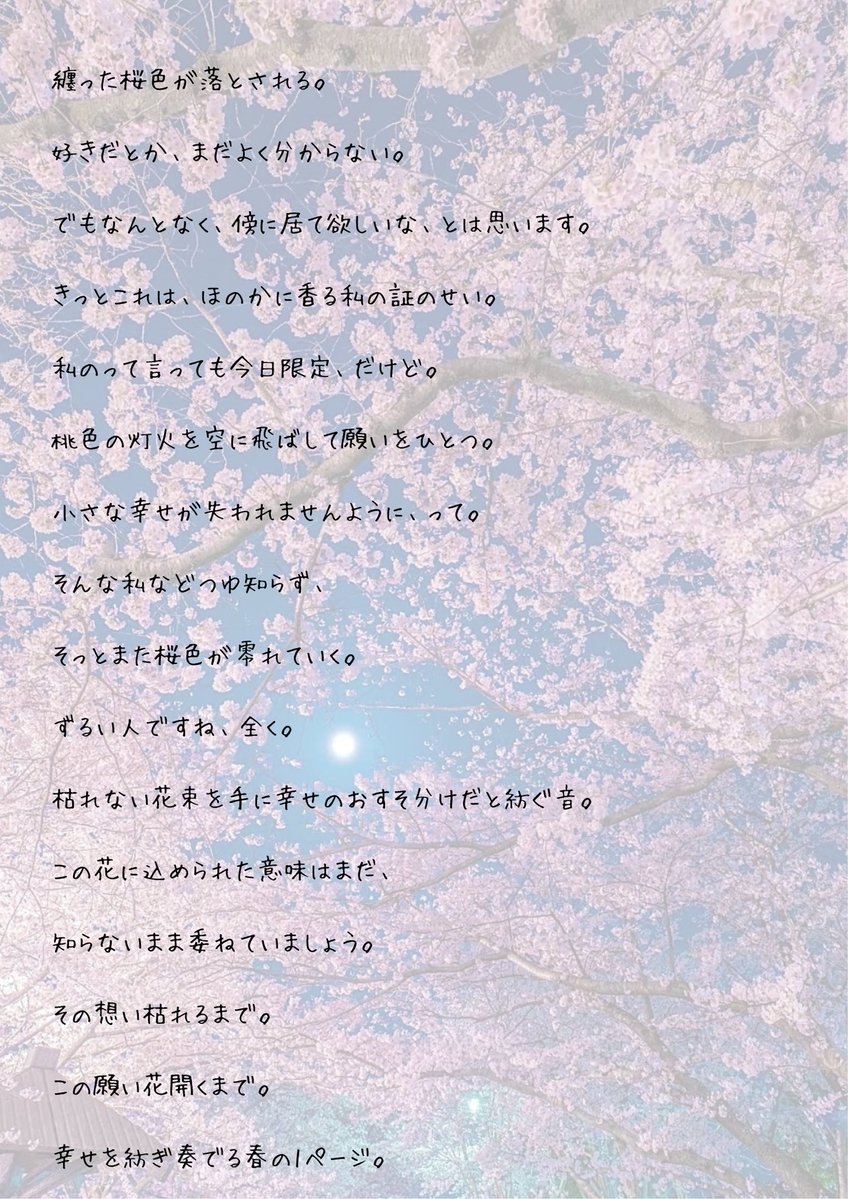 纏った桜色が落とされる。
好きだとか、まだよく分からない。
でもなんとなく、傍に居て欲しいな、とは思います。
きっとこれは、ほのかに香る私の証のせい。
私のって言っても今日限定、だけど。
桃色の灯火を空に飛ばして願いをひとつ。
小さな幸せが失われませんように、って。
そんな私などつゆ知らず、
そっとまた桜色が零れていく。
ずるい人ですね、全く。
枯れない花束を手に幸せのおすそ分けだと紡ぐ音。
この花に込められた意味はまだ、
知らないまま委ねていましょう。
その想い枯れるまで。
この願い花開くまで。
幸せを紡ぎ奏でる春の1ページ。